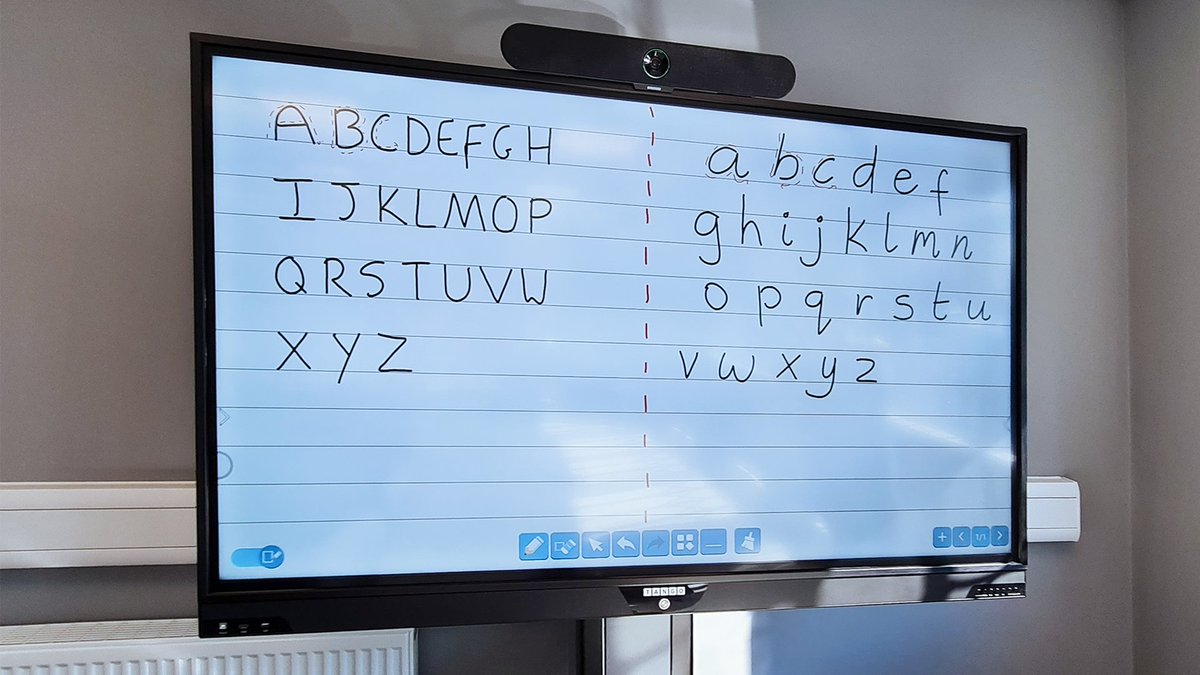 A B C D E F G H
I J K L M O P
Q R S T U V W
X Y Z
a b c d e f
g h i j k l m n
o p q r s t u
v w x y z
1/1
TANGO